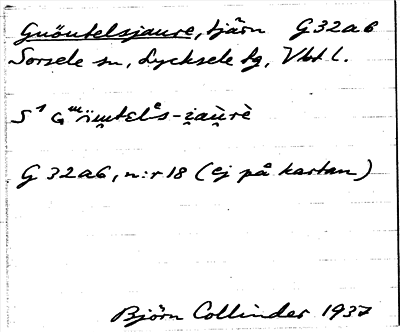 Gnöutelsjaure, tjärn G 32 a 6
Sorsele sn, Lycksele lg, Vbt l.
G 32 a 6, n:r 18 (ej på kartan)
Björn Collinder 1937